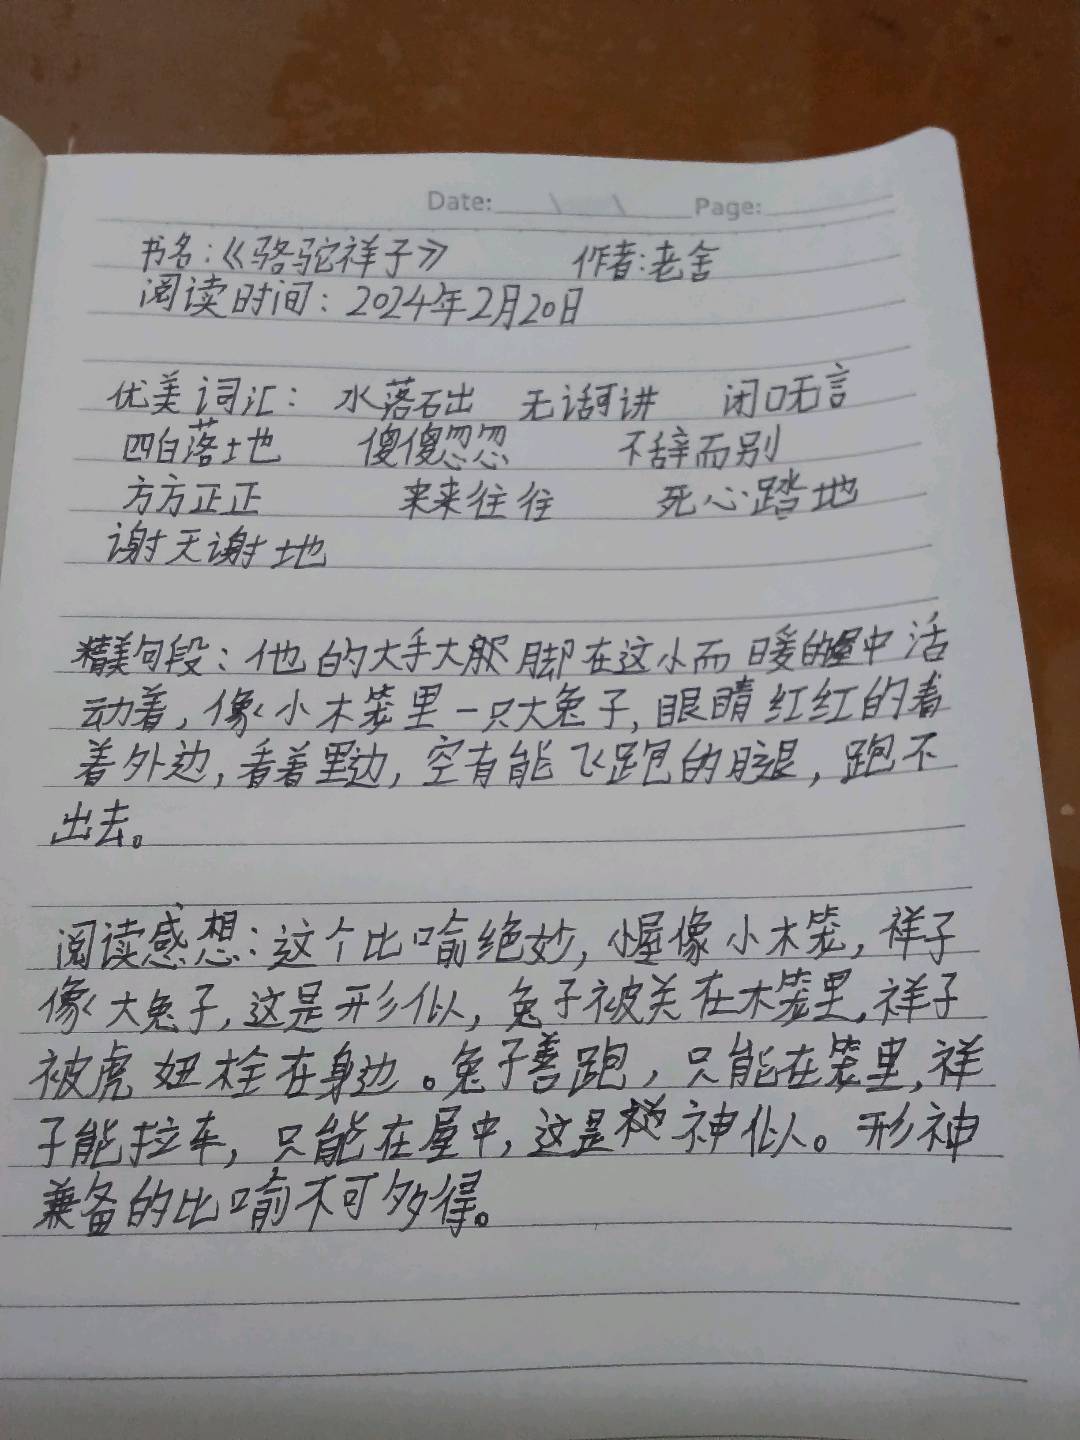 Date: \ \ Page:
书名:《骆驼祥子》 作者:老舍
阅读时间:2024年2月20日
优美词汇: 水落石出 无话可讲 闭口无言
四白落土地 傻傻忽忽 不辞而别
方方正正 来来往往 死心踏地
谢天谢地
精美句段:他的大手大脚在这小而暖的屋中活
动着,像小木笼里一只大兔子,眼睛红红的看
着外边,看着里边,空有能飞跑的腿,跑不
出去。
阅读感想:这个比喻绝妙,小屋像小木笼,祥子
像大兔子,这是形似,兔子被关在木笼里,祥子
被虎妞栓在身边。兔子善跑,只能在笼里,祥
子能拉车,只能在屋中,这是神似。形神
兼备的比喻不可多得。